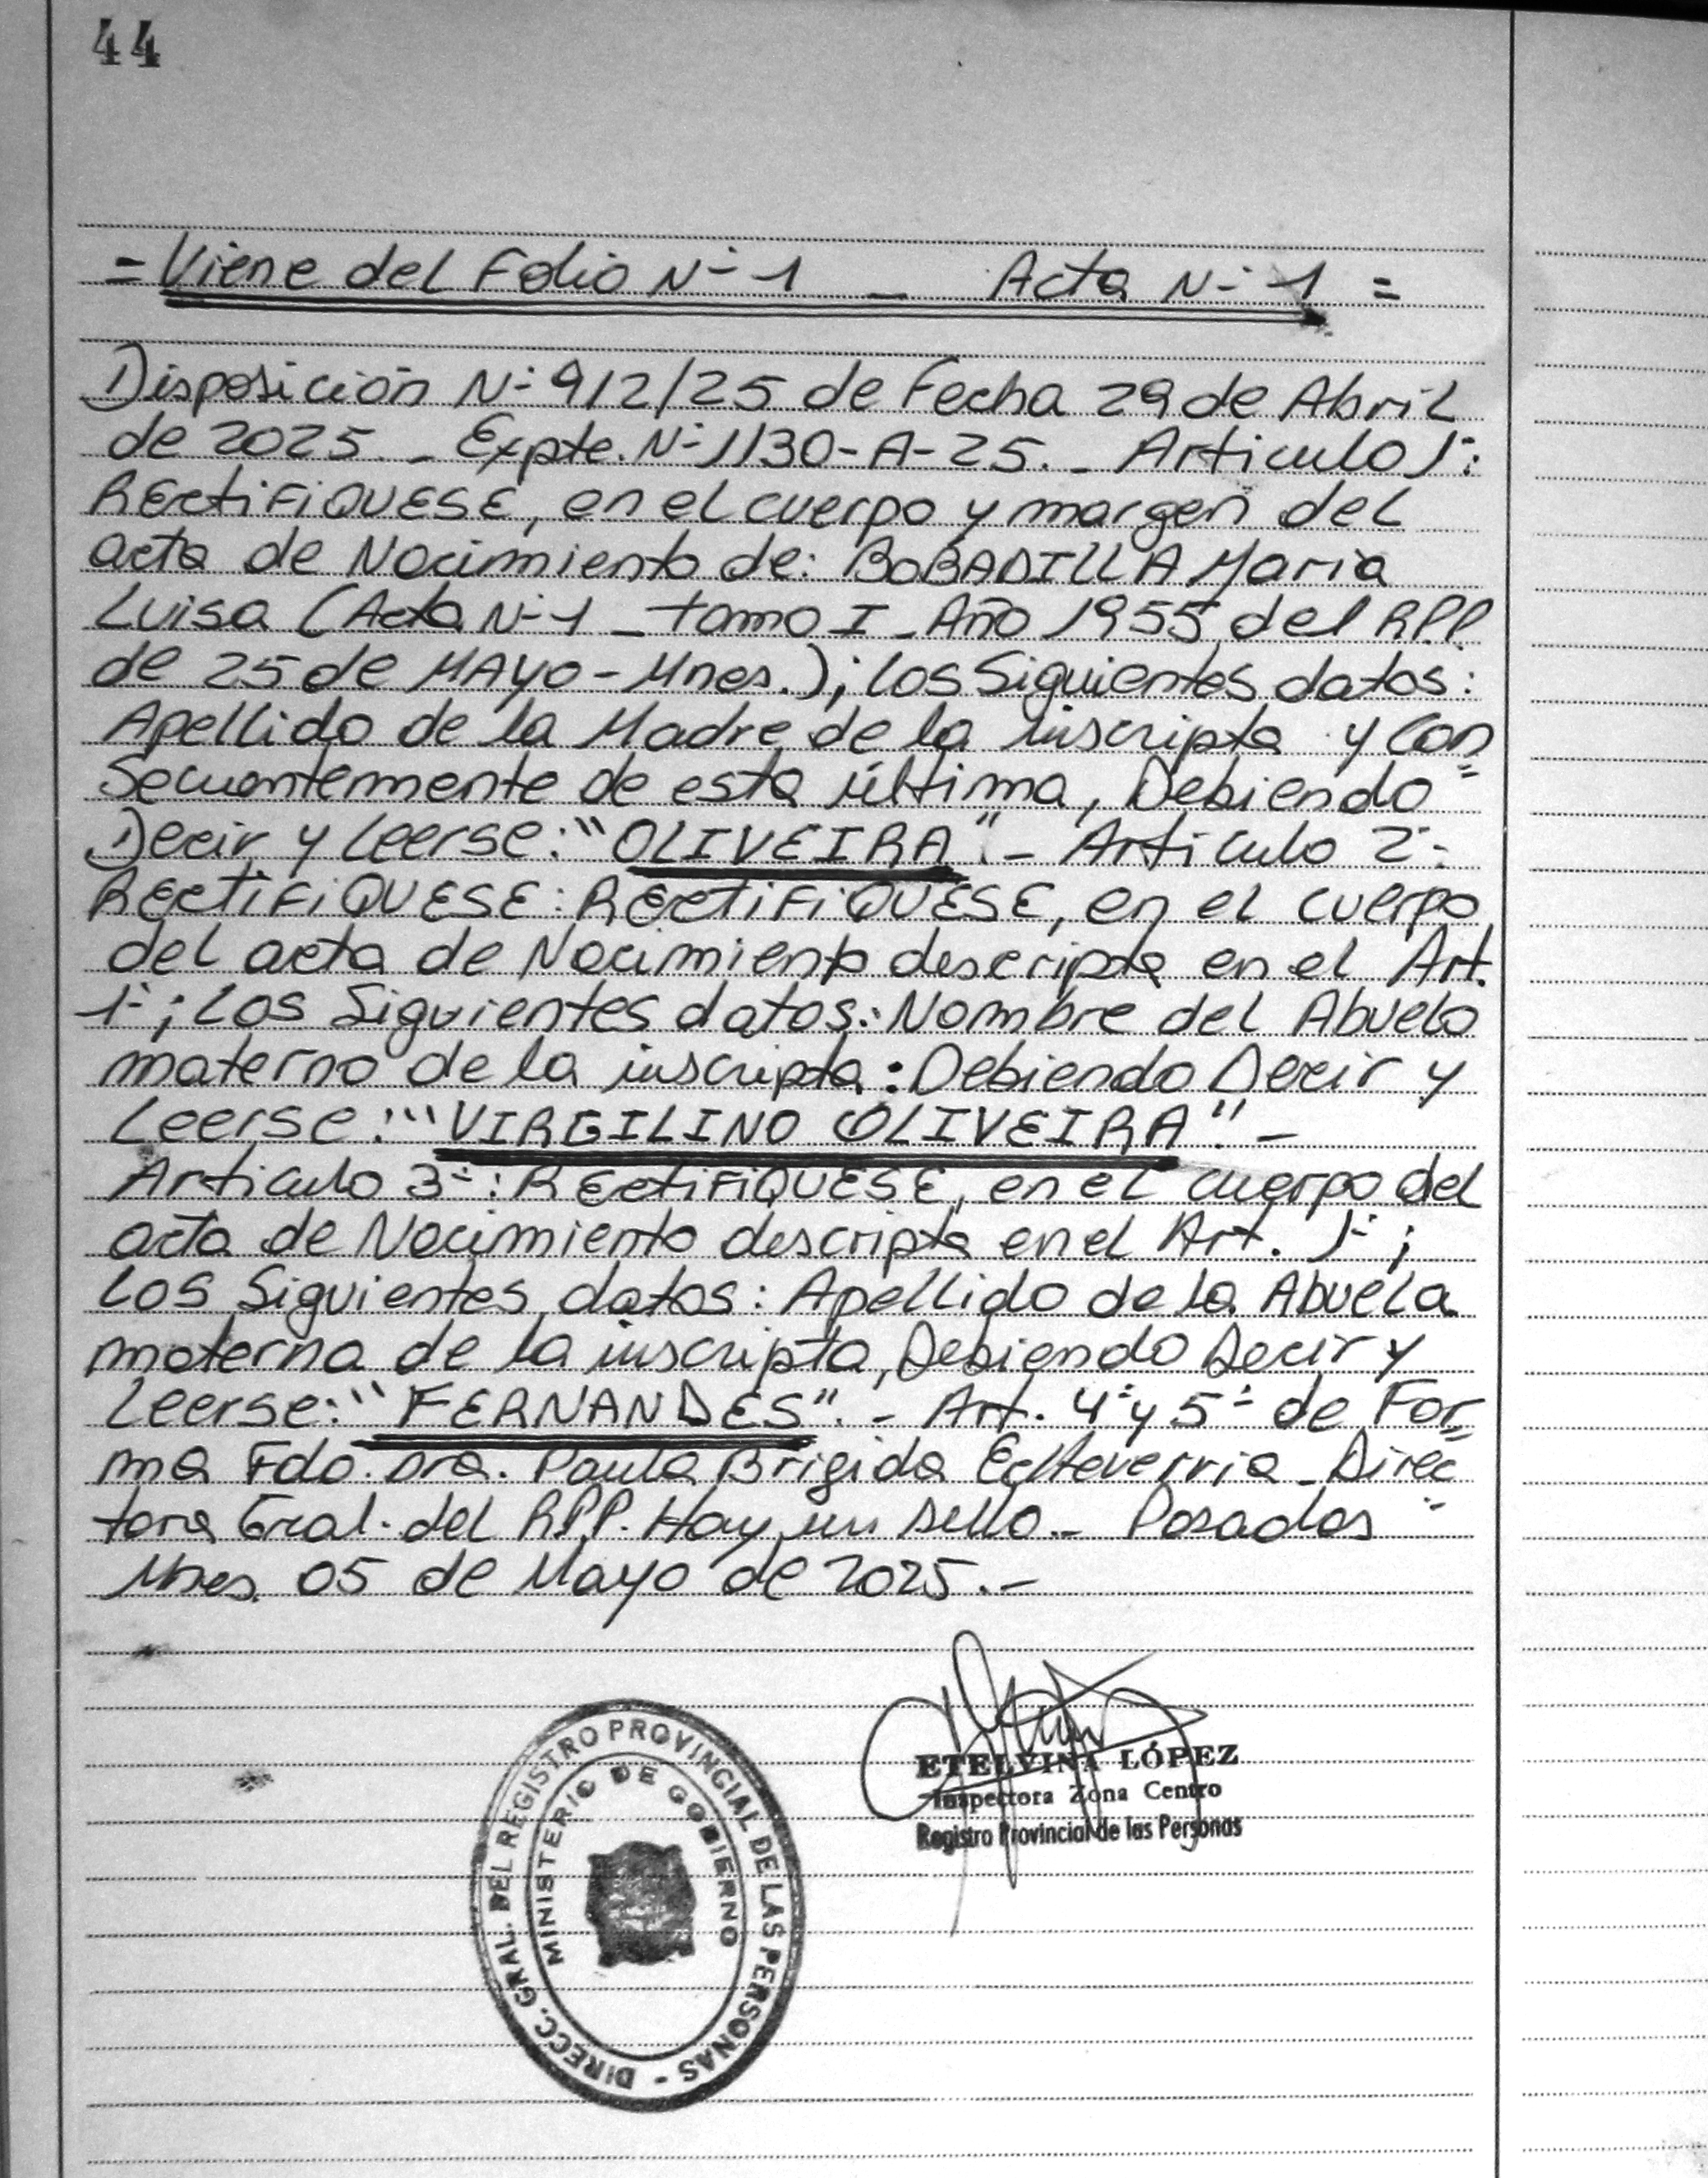 44
= Viene del Folio Nº 1 _ Acta Nº 1 =
Disposición Nº 912/25 de Fecha 29 de Abril
de 2025._ Expte. Nº 1130-A-25._ Articulo 1º:
RECtiFiQUESE, en el cuerpo y margen del
acta de Nacimiento de: BOBADILLA Maria
Luisa (Acta Nº 1 _ tomo I _ Año 1955 del RPP
de 25 de MAYO - Mnes.); los Siguientes datos:
Apellido de la Madre de la inscripta y Con
Secuentemente de esta última, Debiendo =
Decir y Leerse: "OLIVEIRA"._ Articulo 2º:
RECtiFiQUESE: RECtiFiQUESE, en el cuerpo
del acta de Nacimiento descripta en el Art.
1º; los Siguientes datos: Nombre del Abuelo
materno de la inscripta: Debiendo Decir y
Leerse: "VIRGILINO OLIVEIRA" _
Articulo 3º: RECtiFiQUESE, en el cuerpo del
acta de Nacimiento descripta en el Art. 1º;
los Siguientes datos: Apellido de la Abuela
materna de la inscripta, Debiendo Decir y
Leerse: "FERNANDES"._ Art. 4º y 5º de For=
ma Fdo. Dra. Paula Brigida Echeverria _ Direc=
tora Gral. del RPP. Hay un sello._ Posadas
Mnes. 05 de Mayo de 2025._
ETELVINA LÓPEZ
Inspectora Zona Centro
Registro Provincial de las Personas
DIRECC. GRAL. DEL REGISTRO PROVINCIAL DE LAS PERSONAS -
MINISTERIO DE GOBIERNO